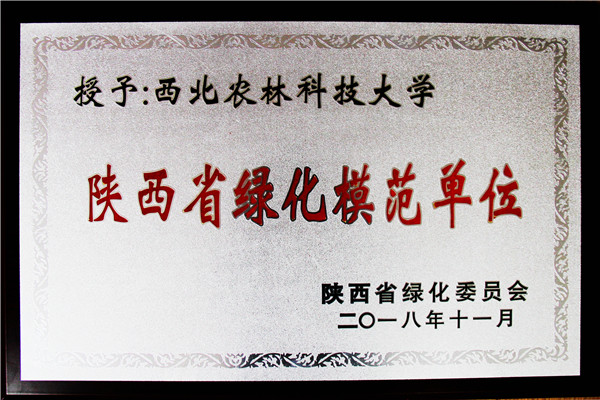 授予:西北农林科技大学
陕西省绿化模范单位
陕西省绿化委员会
二〇一八年十一月